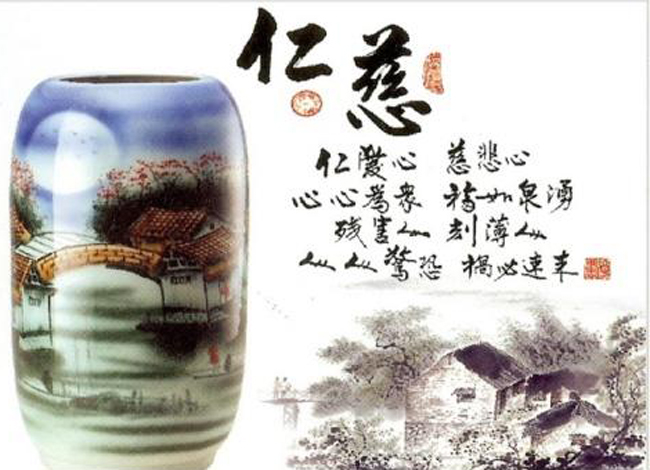 仁慈
仁愛心 慈悲心
心心為衆 福如泉湧
残害人 刻薄人
人人驚恐 禍必速来